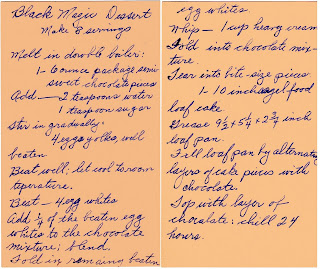 Black Magic Dessert
Make 8 servings
Melt in double boiler:
1-6 ounce package semi
sweet chocolate pieces
Add — 2 teaspoons water
1 teaspoon sugar
Stir in gradually:
4 egg yolks, well
beaten
Beat well; let cool to room
temperature.
Beat — 4 egg whites
Add 1/4 of the beaten egg
whites to the chocolate
mixture; blend.
Fold in remaining beaten
egg whites
Whip — 1 cup heavy cream
Fold into chocolate mix-
ture.
Tear into bite-size pieces
1 - 10 inch angel food
loaf cake
Grease 9 1/2 x 5 1/4 x 2 3/4 inch
loaf pan
Fill loaf pan by alternating
layers of cake pieces with
chocolate.
Top with layer of
chocolate: chill 24
hours.